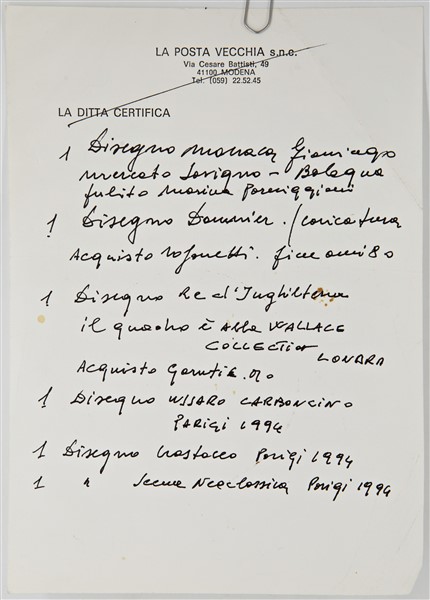 LA POSTA VECCHIA s.n.c.
Via Cesare Battisti, 49
41100 MODENA
Tel. (059) 22.52.45
LA DITTA CERTIFICA
1 Disegno monaca
mercato Savigno - Bologna
Marina Parmiggiani
1 Disegno Daumier. / caricatura
Acquisto fine anni 80
1 Disegno Re d'Inghilterra
il quadro è alla WALLACE
COLLECTION
LONDRA
Acquisto
1 Disegno USSARO CARBONCINO
PARIGI 1994
1 Disegno Parigi 1994
1 " Scena Neoclassica Parigi 1994